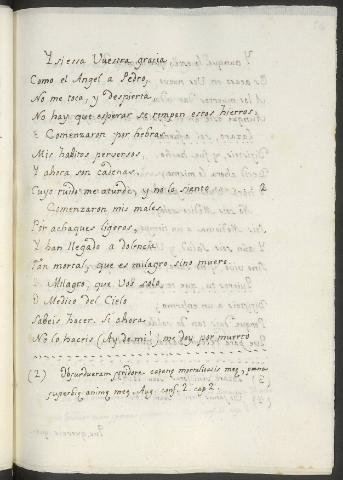 Y si essa Vuestra gracia
Como el Angel a Pedro,
No me toca, y despierta
No hay que esperar se rompen estos hierros
Comenzaron por hebras
Mis habitos perversos,
Y ahora son cadenas,
Cuyo ruido me aturde, y no la siento 2
Comenzaron mis males
Por achaques ligeros,
Y han llegado a dolencia
Tan mortal, que es milagro sino muero.
Milagro, que Vos solo
O Medico del Cielo
Sabeis hacer. Si ahora
No lo haceis (Ay de mi!) me doy por muerto
(2) Obsurdueram stridore catenę mortalitatis meę, pœna
superbię animę meę. Aug. conf. 2. cap 2.